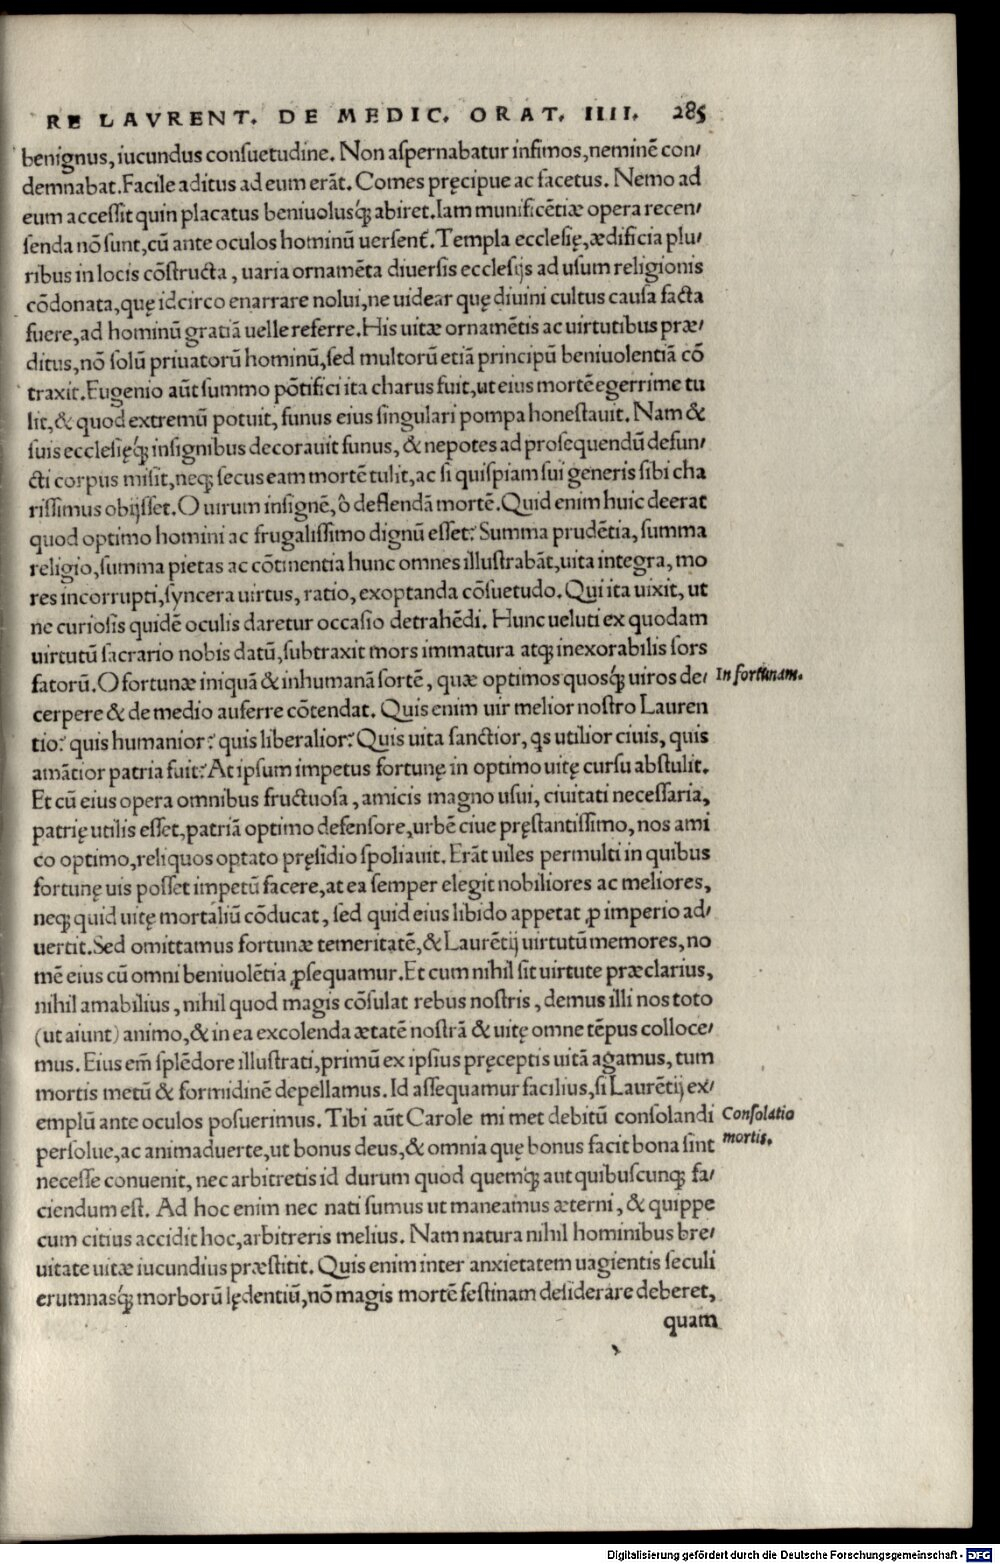 RE LAVRENT. DE MEDIC. ORAT. IIII. 285
benignus, iucundus consuetudine. Non aspernabatur infimos, neminē con/
demnabat. Facile aditus ad eum erāt. Comes pręcipue ac facetus. Nemo ad
eum accessit quin placatus beniuolusq́ꝫ abiret. Iam munificētiæ opera recen/
senda nō sunt, cū ante oculos hominū uersent᷑. Templa ecclesię, ædificia plu/
ribus in locis cōstructa, uaria ornamēta diuersis ecclesijs ad usum religionis
cōdonata, quę idcirco enarrare nolui, ne uidear quę diuini cultus causa facta
fuere, ad hominū gratiā uelle referre. His uitæ ornamētis ac uirtutibus præ/
ditus, nō solū priuatorū hominū, sed multorū etiā principū beniuolentiā cō
traxit. Eugenio aūt summo pōtifici ita charus fuit, ut eius mortē egerrime tu
lit, & quod extremū potuit, funus eius singulari pompa honestauit. Nam &
suis ecclesięq́ꝫ insignibus decorauit funus, & nepotes ad prosequendū defun/
cti corpus misit, neqꝫ secus eam mortē tulit, ac si quispiam sui generis sibi cha
rissimus obijsset. O uirum insignē, ô deflendā mortē. Quid enim huic deerat
quod optimo homini ac frugalissimo dignū esset? Summa prudētia, summa
religio, summa pietas ac cōtinentia hunc omnes illustrabāt, uita integra, mo
res incorrupti, syncera uirtus, ratio, exoptanda cōsuetudo. Qui ita uixit, ut
ne curiosis quidē oculis daretur occasio detrahēdi. Hunc ueluti ex quodam
uirtutū sacrario nobis datū, subtraxit mors immatura atqꝫ inexorabilis sors
fatorū. O fortunæ iniquā & inhumanā sortē, quæ optimos quosq́ꝫ uiros de/
In fortunam.
cerpere & de medio auferre cōtendat. Quis enim uir melior nostro Lauren
tio? quis humanior? quis liberalior? Quis uita sanctior, qs utilior ciuis, quis
amātior patria fuit? At ipsum impetus fortunę in optimo uitę cursu abstulit.
Et cū eius opera omnibus fructuosa, amicis magno usui, ciuitati necessaria,
patrię utilis esset, patriā optimo defensore, urbē ciue pręstantissimo, nos ami
co optimo, reliquos optato pręsidio spoliauit. Erāt uiles permulti in quibus
fortunę uis posset impetū facere, at ea semper elegit nobiliores ac meliores,
neqꝫ quid uitę mortaliū cōducat, sed quid eius libido appetat ꝓ imperio ad/
uertit. Sed omittamus fortunæ temeritatē, & Laurētij uirtutū memores, no
mē eius cū omni beniuolētia ꝓsequamur. Et cum nihil sit uirtute præclarius,
nihil amabilius, nihil quod magis cōsulat rebus nostris, demus illi nos toto
(ut aiunt) animo, & in ea excolenda ætatē nostrā & uitę omne tēpus colloce/
mus. Eius em̄ splēdore illustrati, primū ex ipsius pręceptis uitā agamus, tum
mortis metū & formidinē depellamus. Id assequamur facilius, si Laurētij ex/
emplū ante oculos posuerimus. Tibi aūt Carole mi met debitū consolandi
Consolatio
mortis.
persolue, ac animaduerte, ut bonus deus, & omnia quę bonus facit bona sint
necesse conuenit, nec arbitretis id durum quod quemq́ꝫ aut quibuscunqꝫ fa/
ciendum est. Ad hoc enim nec nati sumus ut maneamus æterni, & quippe
cum citius accidit hoc, arbitreris melius. Nam natura nihil hominibus bre/
uitate uitæ iucundius præstitit. Quis enim inter anxietatem uagientis seculi
erumnasq́ꝫ morborū lędentiū, nō magis mortē festinam desiderare deberet,
quam
Digitalisierung gefördert durch die Deutsche Forschungsgemeinschaft - DFG